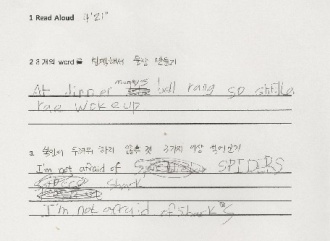 1 Read Aloud 4'21"
2 8개의 word를 선택해서 문장 만들기
At dinner mommy's bell rang so stella
rae woke up
3. 본인이 두려워 하지 않는 것 2가지 예상 적어보기
I'm not afraid of SPIDERS
shark
I'm not afraid of shark's